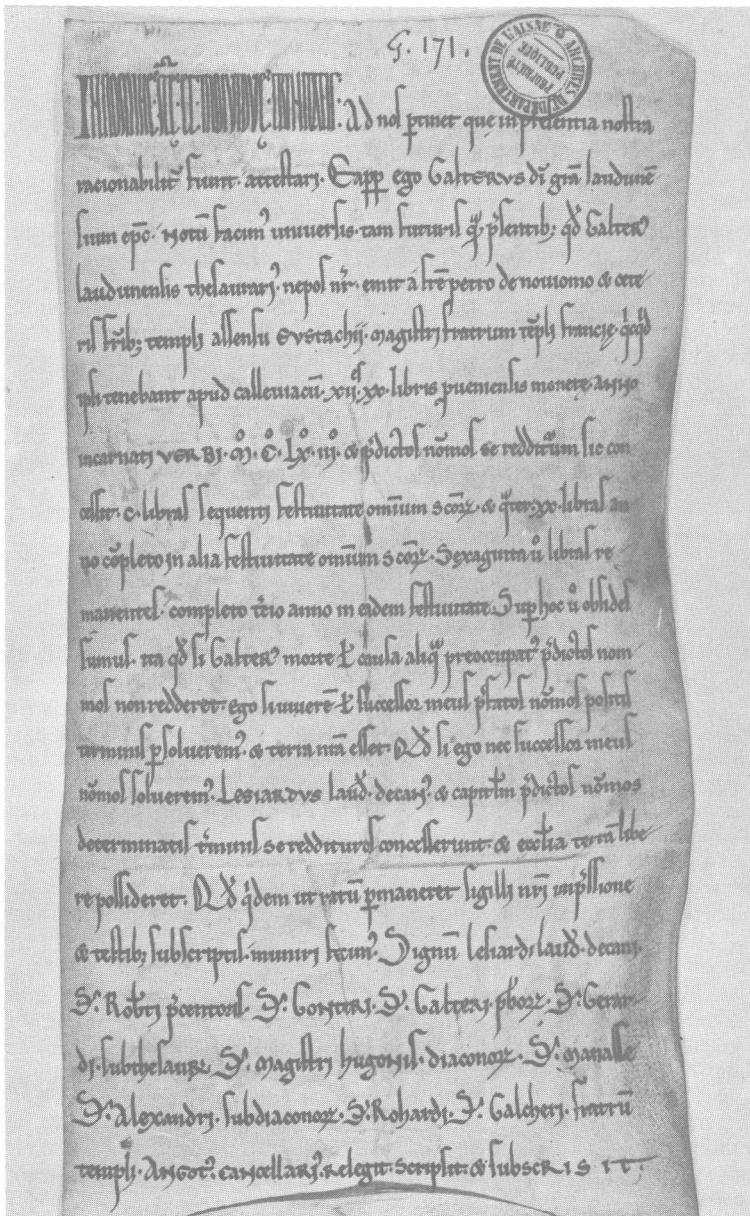 G. 171.
ARCHIVES DU DÉPARTEMENT DE L'AISNE
PROPRIÉTÉ PUBLIQUE
Ad nos ptinet que in presentia nostra
racionabilit̄ fiunt attestari. Eapp ego GALTERVS dī grā laudunē
sium ep̄c. Notū facim᾽ universis. tam futuris q̄ p̄sentib; qd̄ Galter᾽
laudunensis thesaurari᾽. nepos nr̄. emit a fr̄e petro de noviomo & cete
ris fr̄ib; templi assensu Eustachij. magistri fratrum tēpli francię. qicqd
ipsi tenebant apud calleviacū. xij. xx. libris pveniensis monete. Anno
incarnati VERBI. M̊. C̊. Lx̊. iij̊. & p̄dictos nōmos se redditurum sic con
cessit. c. libras sequenti festivitate omnium scōꝝ. & qater. xx. libras an
no cōpleto in alia festivitate omnium scōꝝ. Sexaginta ů libras re
manentes. completo t̄cio anno in eidem festivitate. Sup hoc ů obsides
sumus. ita qd̄ si Galter᾽ morte ł causa aliq̄ preoccupat᾽ p̄dictos nom
mos non redderet. ego si viverē ł successor meus p̄fatos nōmos positis
terminis psolverem᾽. & terra nr̄a esset. Qd̄ si ego nec successor meus
nōmos solverem᾽. LESIARDVS laud̄. decan᾽. & capitłm p̄dictos nōmos
determinatis t̄minis se reddituros concesserunt. & eccłia terram libe
re possideret. Qd̄ qidem ut ratū pmaneret sigilli nr̄i imp̄ssione
& testib; subscriptis. muniri fecim᾽. Signū lesiardi laud̄. decani.
S᾽. Robti p̄centoris. S᾽. Gonteri. S᾽. Galteri. pb̄roꝝ. S᾽. Gerar
di. subthesaurꝝ. S᾽. magistri hugonis. diaconoꝝ. S᾽. manasse
S᾽. Alexandri. subdiaconoꝝ. S᾽. Rohardi. S᾽. Galcheri. fratrū
templi. Angot᾽. cancellari᾽. relegit. scripsit. & subscRISIT.